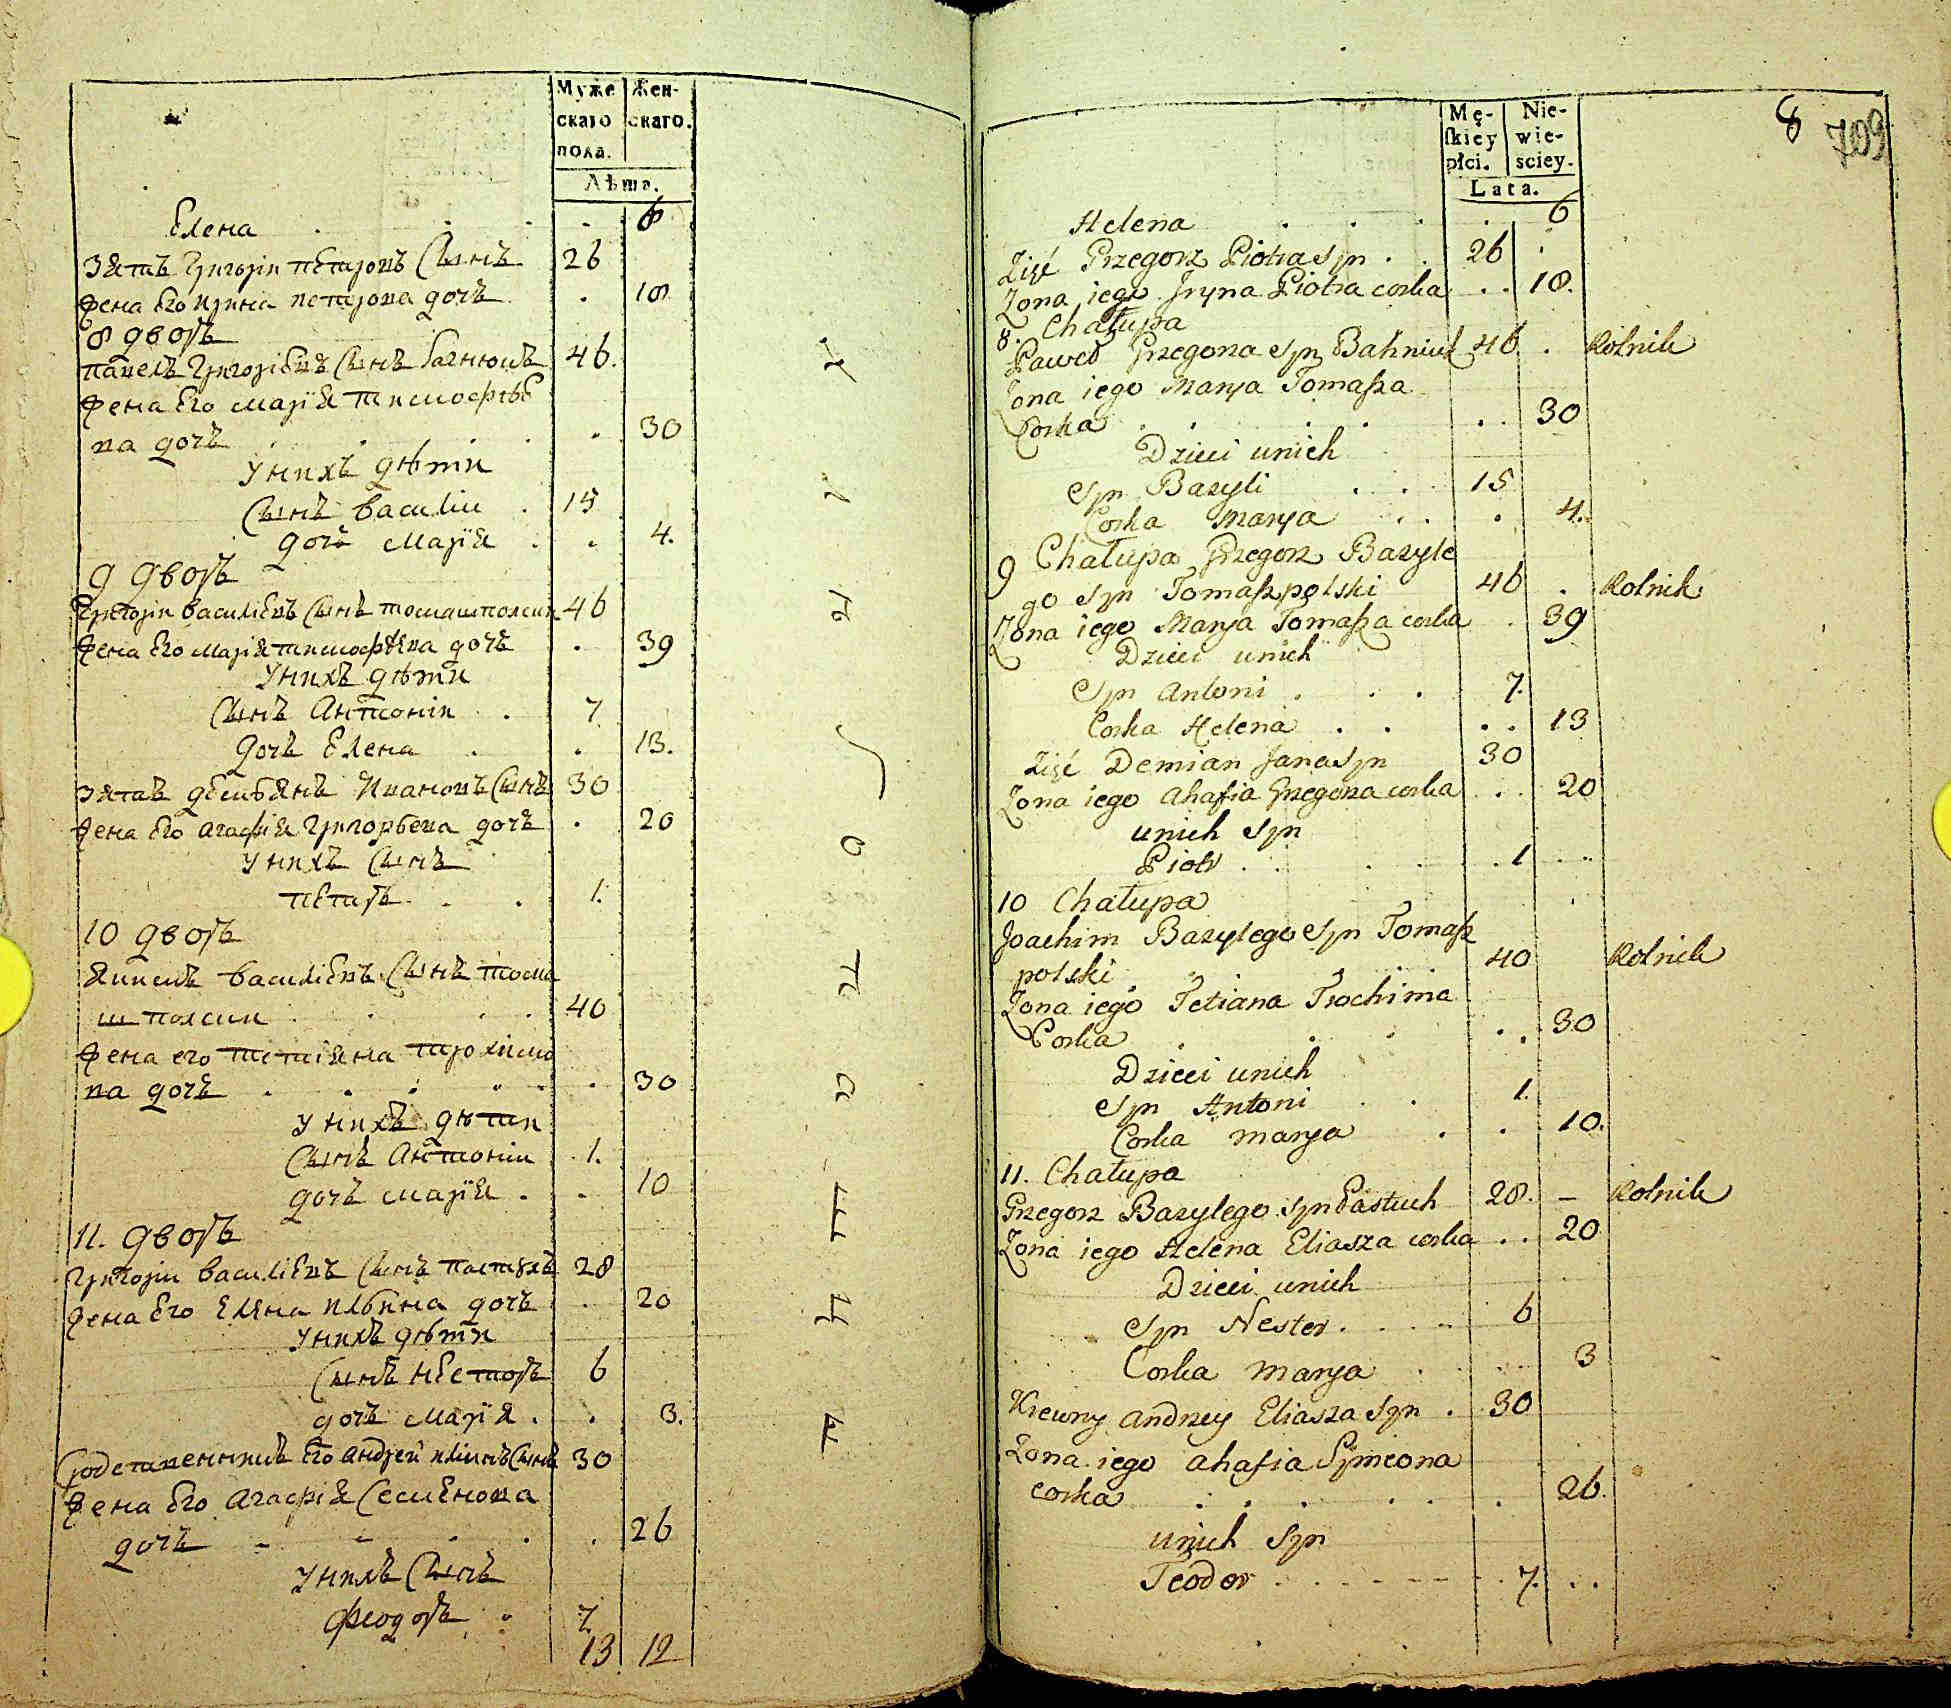 Муже Жен-
скаго скаго.
пола.
Лѣта.
Елена . . . . 6
Зять Григорiи петровъ Сынъ 26
Жена Его Ирина петрова дочь . 18
8 дворъ
павелъ Григорiевъ Сынъ багнюкъ 46.
Жена Его марiя тимофѣе
ва дочь . . . . . 30
У нихъ дѣти
Сынъ василiи . 15
дочь марiя . . 4.
9 дворъ
Григорiи василiевъ Сынъ томашполски 46
Жена Его марiя тимофѣева дочь . 39
У нихъ дѣти
Сынъ Антонiи . 7
дочь Елена . . 13.
Зять демьянъ Ивановъ Сынъ 30
Жена Его агафiя Григорьева дочь . 20
У нихъ Сынъ
петръ . . 1.
10 дворъ
якимъ василiевъ Сынъ тома
шполски . . . . 40
Жена его тетiяна трохимо
ва дочь . . . . . . 30
У нихъ дѣти
Сынъ Антонiи . 1.
дочь марiя . . 10
11. дворъ
Григорiи василiевъ Сынъ пастухъ 28
Жена Его Еляна ильина дочь . 20
У нихъ дѣти
Сынъ несторъ 6
дочь марiя . . 3.
Сродственникъ Его андрей илiинъ Сынъ 30
Жена Его агафiя Семенова
дочь - - . . . 26
У нихъ Сынъ
феодоръ . 7.
13 12
8 709
Mę- Nie-
skiey wie-
płci. sciey.
Lata.
Helena . . . . . 6
Zięć Grzegorz Piotra Syn . . 26 .
Zona iego Iryna Piotra corka . . 18.
8. Chałupa
Paweł Grzegorza Syn Bahniuk 46 . Rolnik
Zona iego Marya Tomasza
Corka . . . . . . . 30
Dzieci unich
Syn Bazyli . . 15
Corka Marya . . . 4.
9 Chałupa Grzegorz Bazyle
go Syn Tomaszpolski 46 . Rolnik
Zona iego Marya Tomasza corka . 39
Dzieci unich
Syn Antoni . . . 7.
Corka Helena . . . . 13
Zięć Demian Jana Syn 30
Zona iego Ahafia Grzegorza corka . . 20
unich Syn
Piotr . . . . . 1 ..
10 Chałupa
Joachim Bazylego Syn Tomasz
polski . . . . 40 Rolnik
Zona iego Tetiana Trochima
Corka . . . . . 30
Dzieci unich
Syn Antoni . . 1.
Corka Marya . . 10.
11. Chałupa
Grzegorz Bazylego Syn Pastuch 28. - Rolnik
Zona iego Helena Eliasza corka . . 20
Dzieci unich
Syn Nester . . . . 6
Corka Marya . . . . 3
Krewny Andrzey Eliasza Syn . 30
Zona iego Ahafia Symeona
corka . . . . . . 26.
unich Syn
Teodor . - - - - - . 7. . .